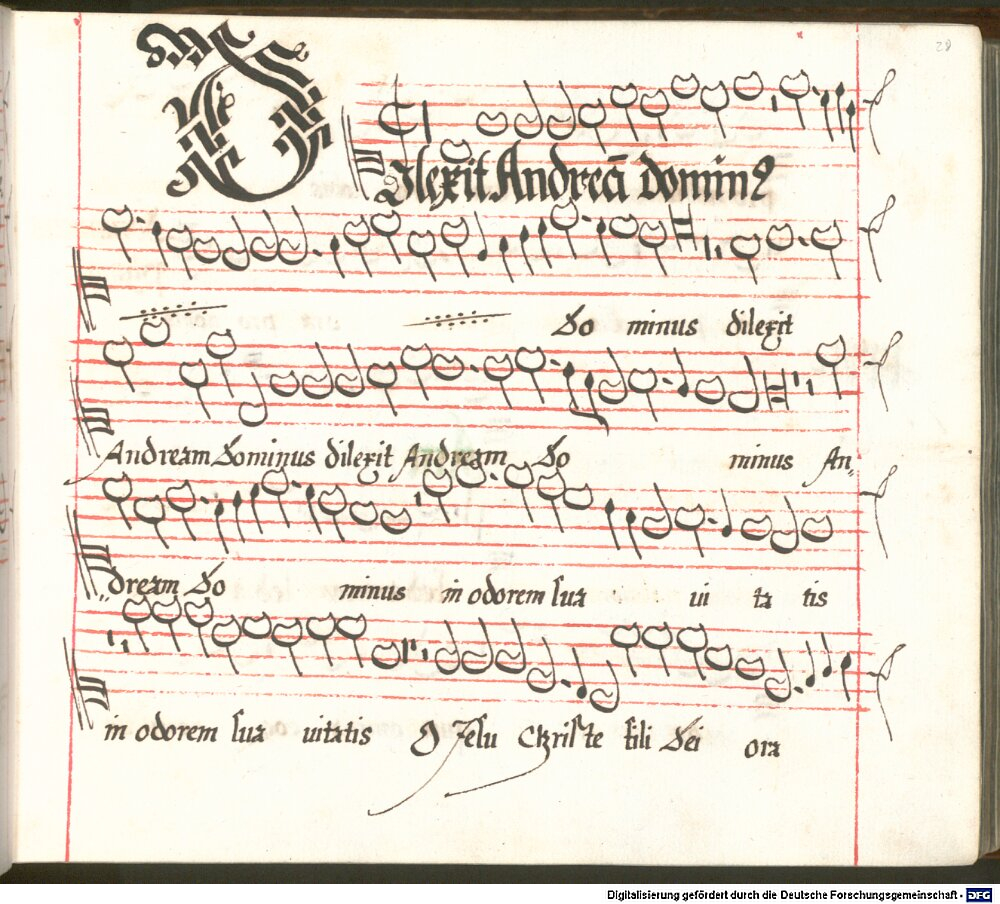 28
Dilexit Andreā dominꝰ
Do minus dilexit
Andream Dominus dilexit Andream Do minus An„
„dream Do minus in odorem sua ui ta tis
in odorem sua uitatis O Jesu Christe fili Dei ora
Digitalisierung gefördert durch die Deutsche Forschungsgemeinschaft - DFG